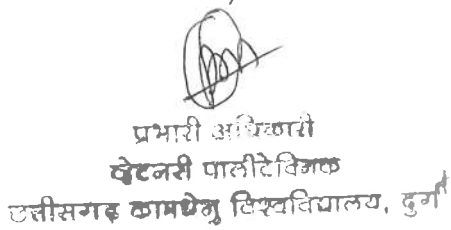 प्रभारी अधिकारी
वेटनरी पालीटेक्निक
छत्तीसगढ़ कामधेनु विश्वविद्यालय, दुर्ग